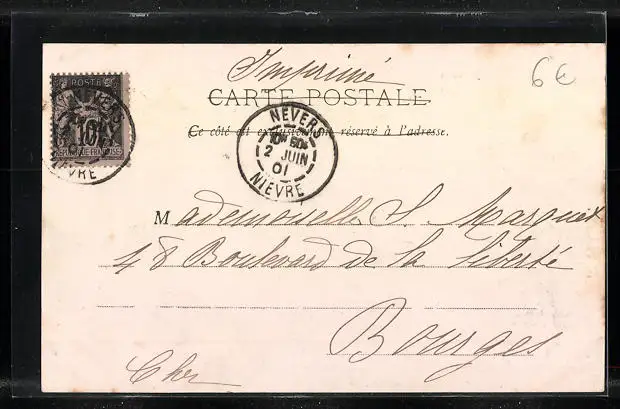 Imprimé
6€
CARTE POSTALE
Ce côté est exclusivement réservé à l'adresse.
POSTE
10
NIÈVRE
NEVERS
10ᴴ 50ᴹ
2 JUIN
01
NIÈVRE
Mademoiselle S. Marquet
48 Boulevard de la Liberté
Bourges
Cher